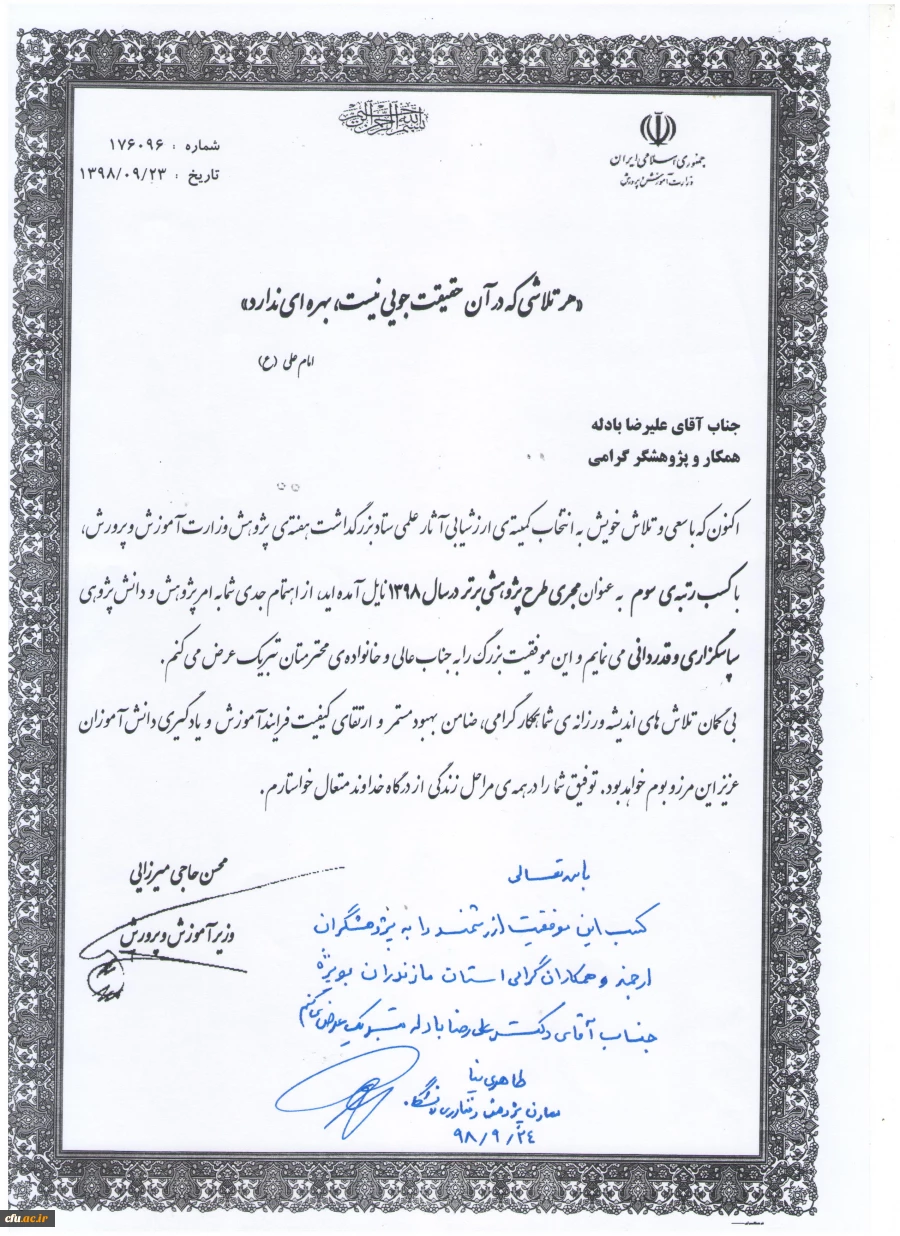 بسم الله الرحمن الرحیم
جمهوری اسلامی ایران
وزارت آموزش و پرورش
شماره : ۱۷۶۰۹۶
تاریخ : ۱۳۹۸/۰۹/۲۳
«هر تلاشی که در آن حقیقت جویی نیست، بهره ای ندارد»
امام علی (ع)
جناب آقای علیرضا بادله
همکار و پژوهشگر گرامی
اکنون که با سعی و تلاش خویش به انتخاب کمیته‌ی ارزشیابی آثار علمی ستاد بزرگداشت هفته‌ی پژوهش وزارت آموزش و پرورش،
با کسب رتبه‌ی سوم به عنوان مجری طرح پژوهشی برتر در سال ۱۳۹۸ نایل آمده اید، از اهتمام جدی شما به امر پژوهش و دانش پژوهی
سپاسگزاری و قدردانی می نمایم و این موفقیت بزرگ را به جناب عالی و خانواده‌ی محترمتان تبریک عرض می کنم.
بی گمان تلاش های اندیشه ورزانه ی شما همکار گرامی، ضامن بهبود مستمر و ارتقای کیفیت فرایند آموزش و یادگیری دانش آموزان
عزیز این مرز و بوم خواهد بود. توفیق شما را در همه ی مراحل زندگی از درگاه خداوند متعال خواستارم.
محسن حاجی میرزایی
وزیر آموزش و پرورش
باسمه تعالی
کسب این موفقیت ارزشمند را به پژوهشگران
ارجمند و همکاران گرامی استان مازندران بویژه
جناب آقای دکتر علی رضا بادله تبریک عرض می کنم
طاهری نیا
معاون پژوهش و فناوری دانشگاه
۹۸/۹/۲۴
cfu.ac.ir